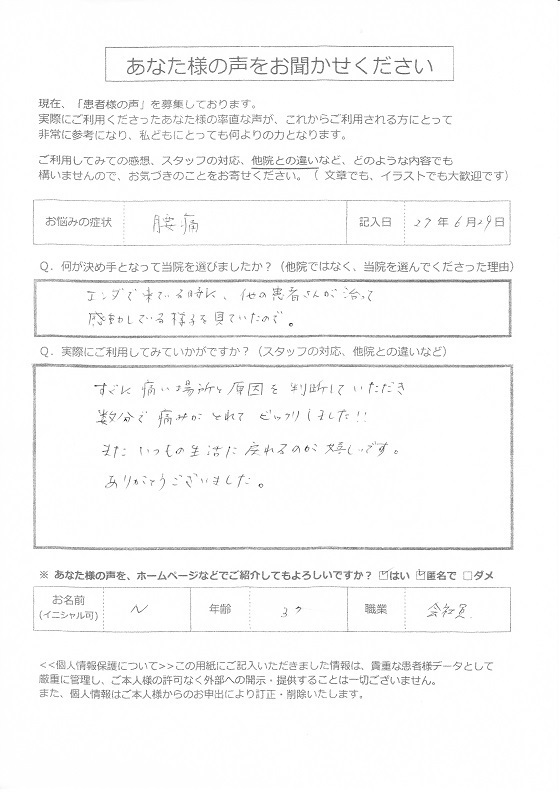 あなた様の声をお聞かせください
現在、「患者様の声」を募集しております。
実際にご利用くださったあなた様の率直な声が、これからご利用される方にとって
非常に参考になり、私どもにとっても何よりの力となります。
ご利用してみての感想、スタッフの対応、他院との違いなど、どのような内容でも
構いませんので、お気づきのことをお寄せください。（文章でも、イラストでも大歓迎です）
お悩みの症状 腰痛 記入日 27年6月29日
Q．何が決め手となって当院を選びましたか？（他院ではなく、当院を選んでくださった理由）
で来ている時に、他の患者さんが治って
感動している様子を見ていたので。
Q．実際にご利用してみていかがですか？（スタッフの対応、他院との違いなど）
すぐに痛い場所と原因を判断していただき
数分で痛みがとれてビックリしました!!
またいつもの生活に戻れるのが嬉しいです。
ありがとうございました。
※ あなた様の声を、ホームページなどでご紹介してもよろしいですか？ ☑はい ☑匿名で □ダメ
お名前 N 年齢 37 職業 会社員
(イニシャル可)
<<個人情報保護について>>この用紙にご記入いただきました情報は、貴重な患者様データとして
厳重に管理し、ご本人様の許可なく外部への開示・提供することは一切ございません。
また、個人情報はご本人様からのお申出により訂正・削除いたします。